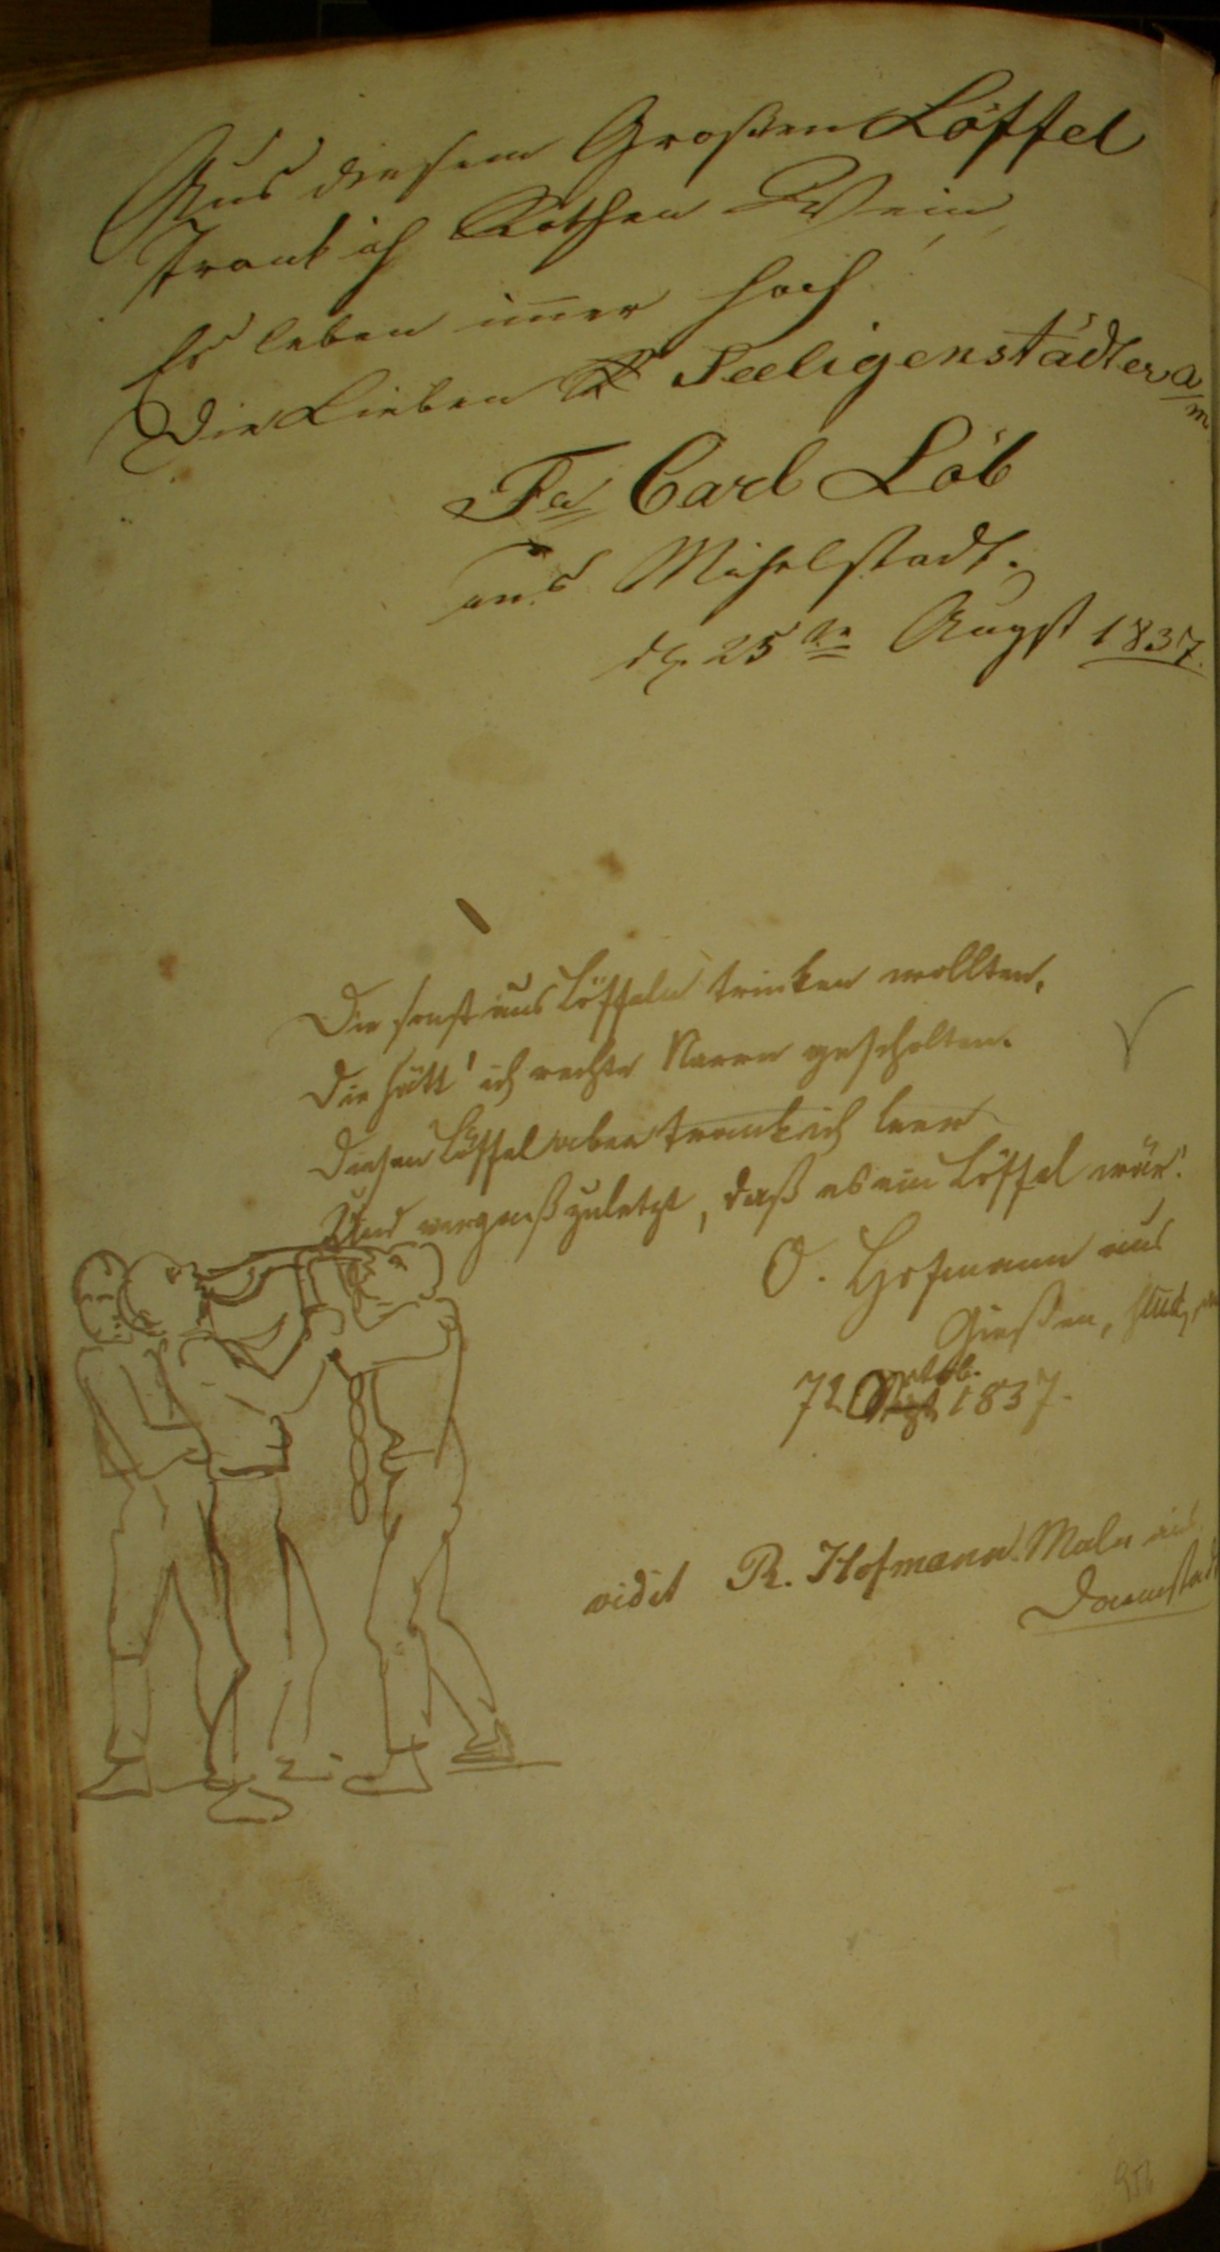 Aus diesem Großen Löffel
Trank ich Rothen Wein,
Es leben im̄er hoch
Die Lieben Seeligenstädter a/m
Fd Carl Löb
aus Michelstadt.
d. 25ten Augst 1837.
Die sonst aus Löffeln trinken wollten,
Die hätt' ich rechte Narren gescholten.
Diesen Löffel aber trank ich leer
Und vergaß zuletzt, daß es ein Löffel wär'.
O. Hofmann aus
Gießen,
1837.
vidit R. Hofmann. Maler aus
Darmstadt